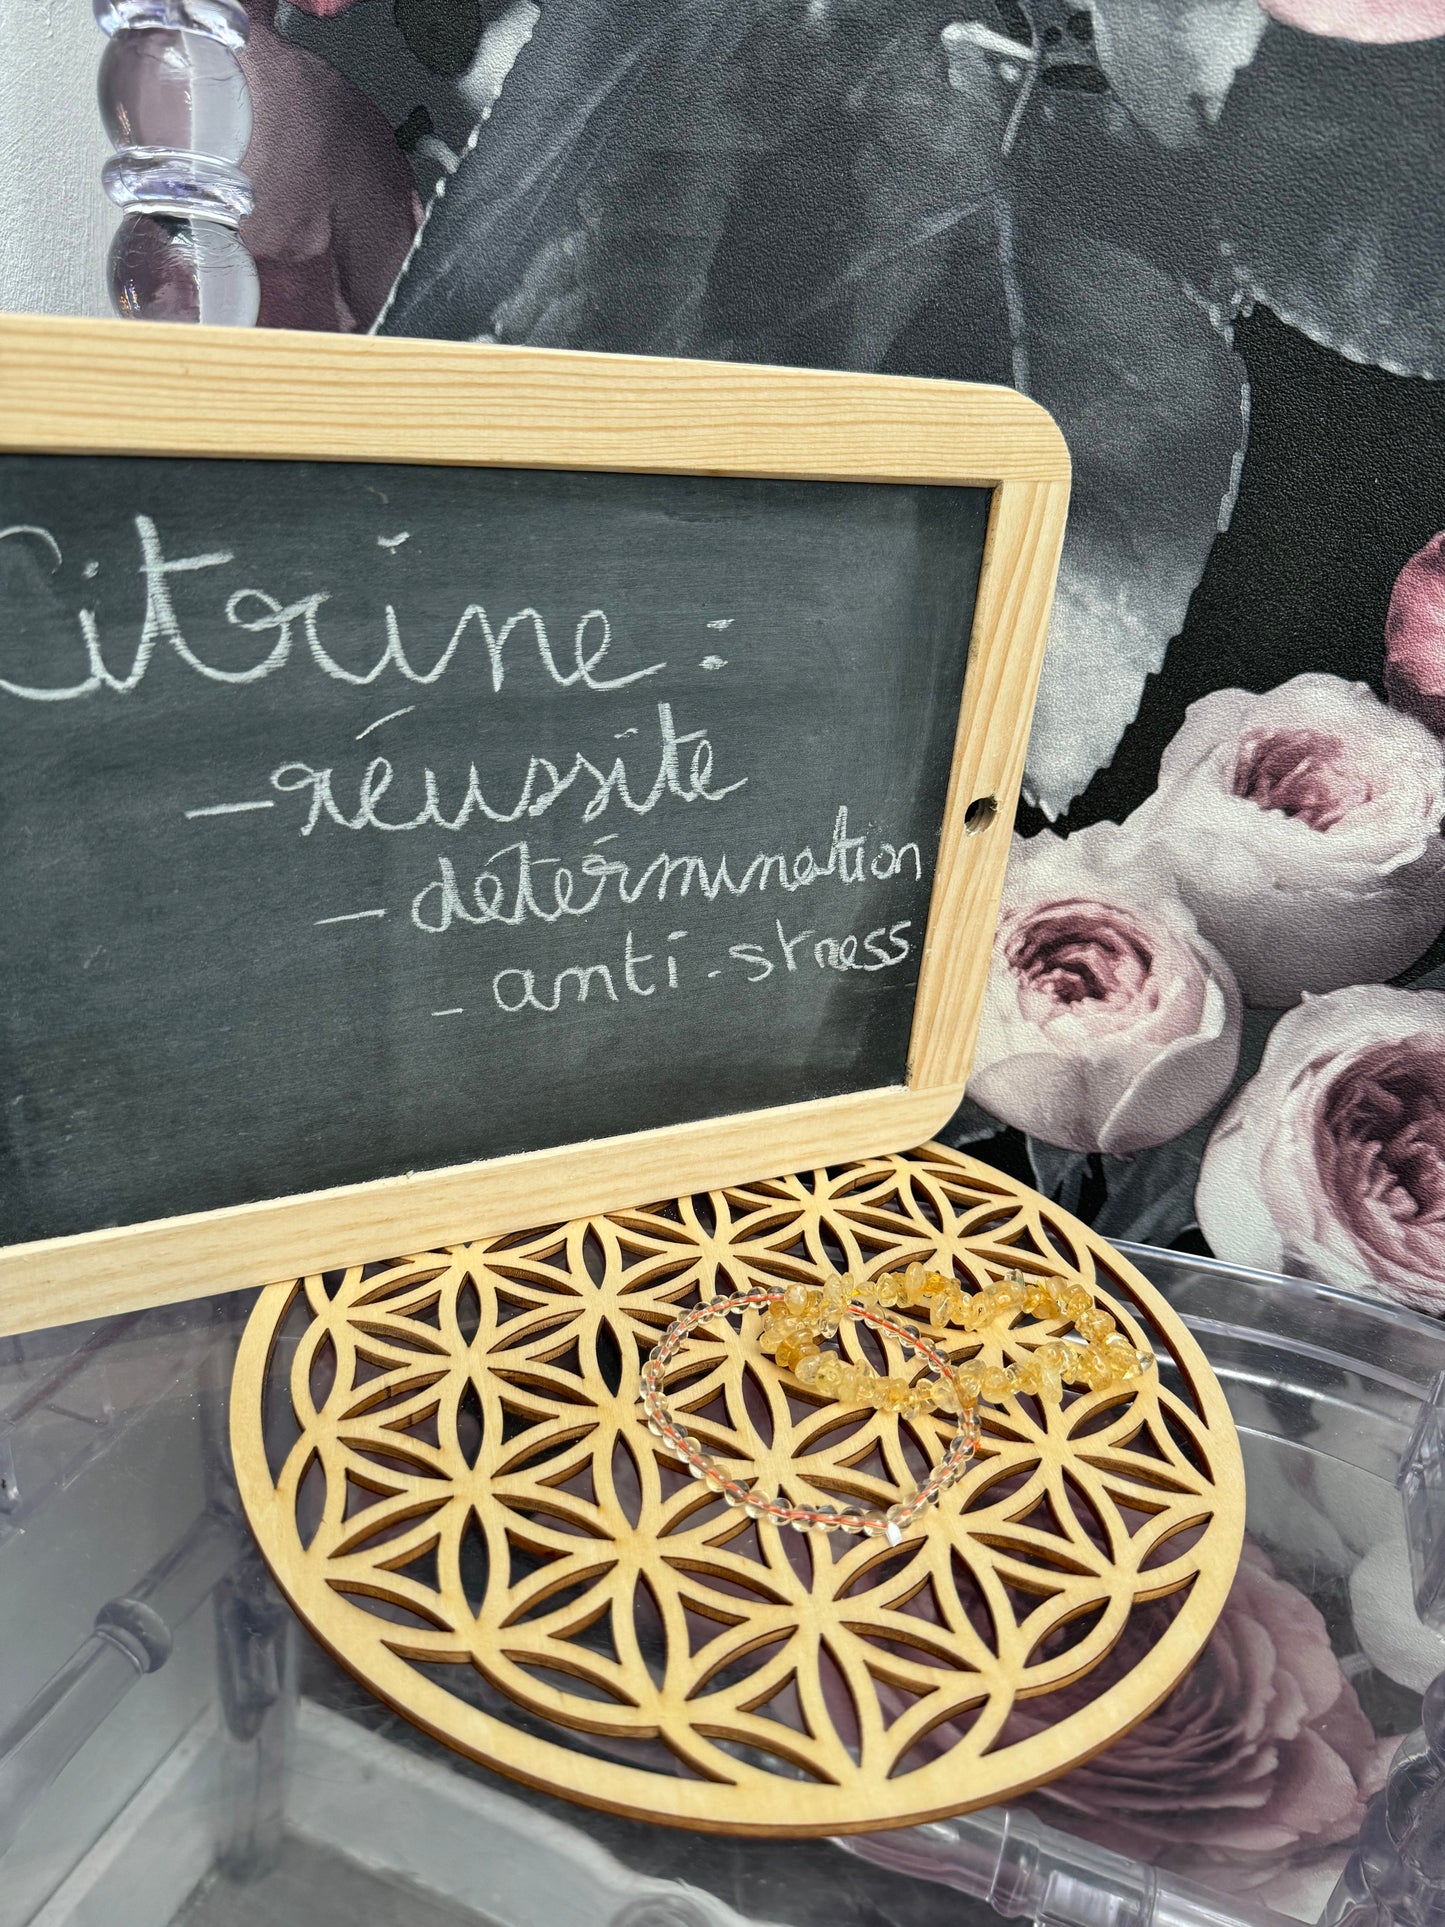 Citrine :
- réussite
- détermination
- anti-stress